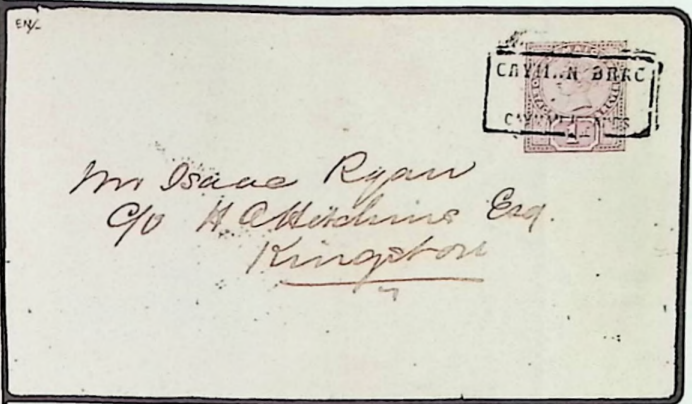 EN/-
CAYMAN BRAC
CAYMAN ISLANDS
1D
Mr Isaac Ryan
c/o H Hitchins Esq.
Kingston